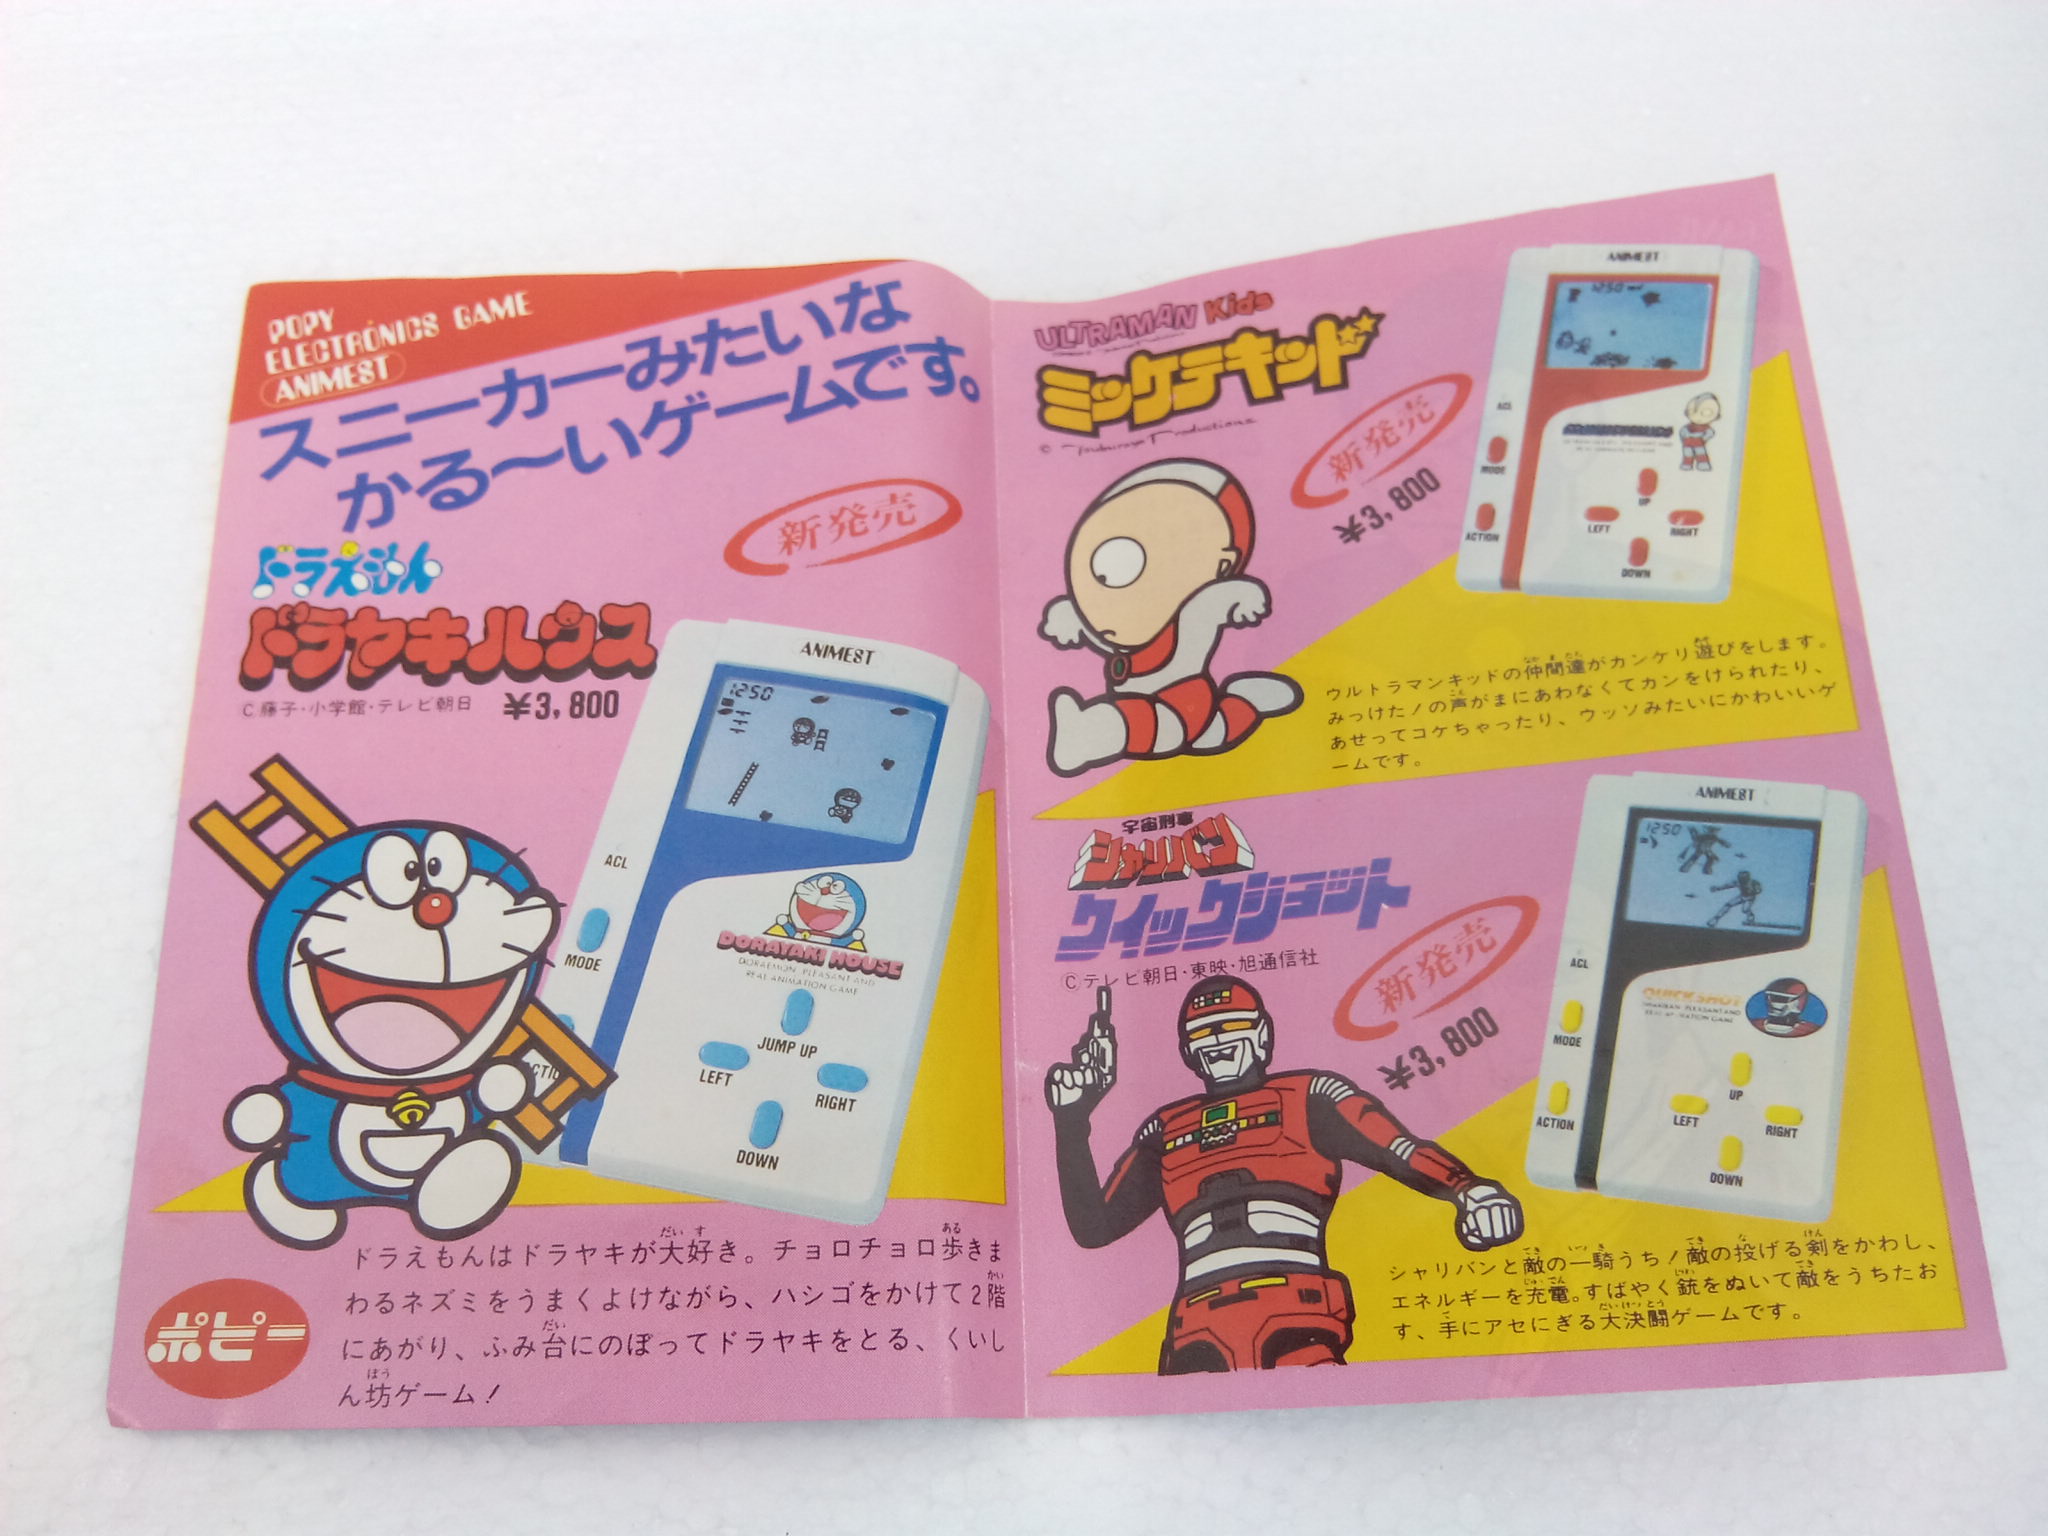 POPY
ELECTRONICS GAME
ANIMEST
スニーカーみたいな
かる〜いゲームです。
新発売
ドラえもん
ドラヤキハウス
C 藤子・小学館・テレビ朝日
¥3,800
ANIMEST
1250
ACL
MODE
DORAYAKI HOUSE
DORAEMON PLEASANT AND
REAL ANIMATION GAME
JUMP UP
LEFT
RIGHT
DOWN
ドラえもんはドラヤキが大好き。チョロチョロ歩きま
わるネズミをうまくよけながら、ハシゴをかけて2階
にあがり、ふみ台にのぼってドラヤキをとる、くいし
ん坊ゲーム!
ポピー
ULTRAMAN Kids
ミッケテキッド
© Tsuburaya Productions
新発売
¥3,800
ANIMEST
1250
ACL
MODE
ACTION
UP
LEFT
RIGHT
DOWN
ウルトラマンキッドの仲間達がカンケリ遊びをします。
みっけた!の声がまにあわなくてカンをけられたり、
あせってコケちゃったり、ウッソみたいにかわいいゲ
ームです。
宇宙刑事
シャリバン
クイックショット
© テレビ朝日・東映・旭通信社
新発売
¥3,800
ANIMEST
1250
ACL
MODE
ACTION
QUICK SHOT
UP
LEFT
RIGHT
DOWN
シャリバンと敵の一騎うち!敵の投げる剣をかわし、
エネルギーを充電。すばやく銃をぬいて敵をうちたお
す、手にアセにぎる大決闘ゲームです。